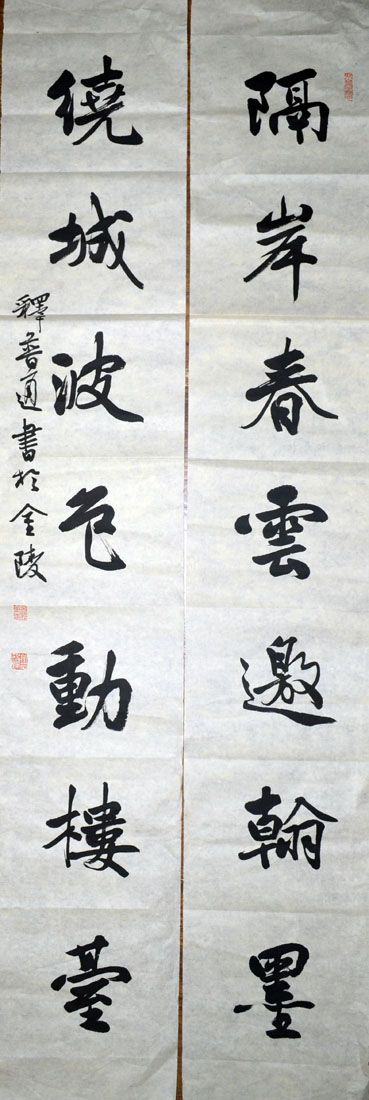 隔岸春雲邀翰墨
繞城波色動樓臺
釋普通書於金陵